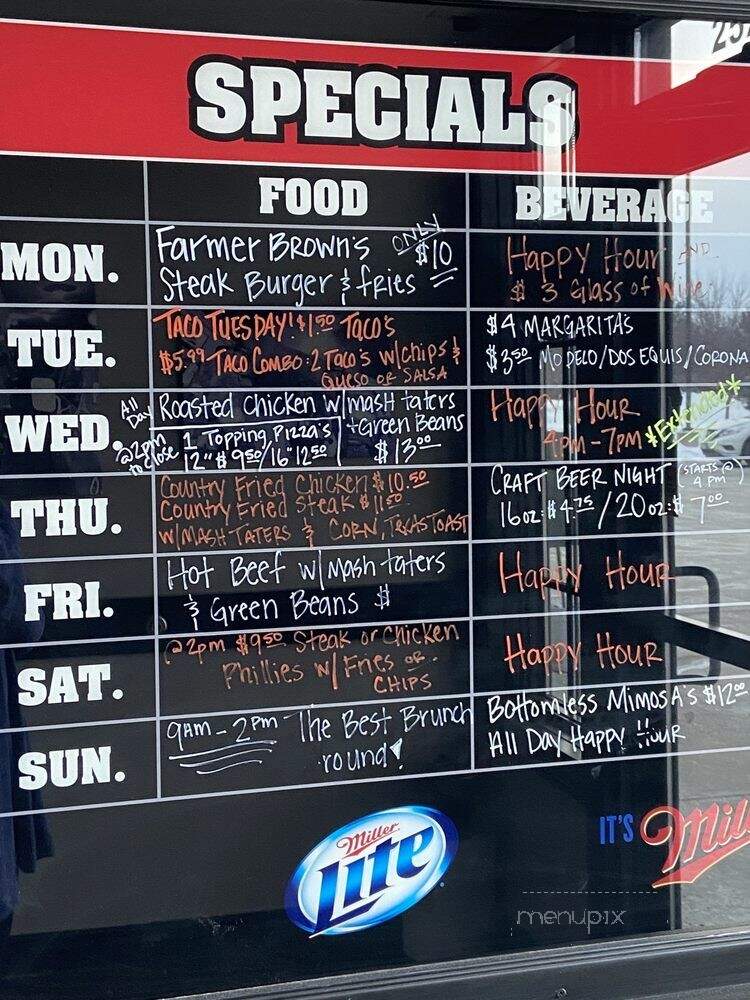 254
SPECIALS
FOOD
BEVERAGE
MON.
Farmer Brown's ONLY
Steak Burger & fries $10
Happy Hour AND
$3 Glass of Wine
TUE.
TACO TUESDAY! $1.50 TACO'S
$5.99 TACO COMBO: 2 TACO'S w/ CHIPS &
QUESO OR SALSA
$4 MARGARITA'S
$3.50 MODELO/DOS EQUIS/CORONA
WED.
All Day Roasted Chicken w/ mash taters
+ Green Beans
$13.00
@2pm to Close 1 Topping Pizza's
12" $9.50/16" 12.50
Happy Hour
4pm-7pm *Extended*
THU.
Country Fried Chicken $10.50
Country Fried Steak $11.50
w/ MASH TATERS & CORN, TEXAS TOAST
CRAFT BEER NIGHT (STARTS @ 4 PM)
16oz: $4.75 / 20oz: $7.00
FRI.
Hot Beef w/ Mash taters
& Green Beans $
Happy Hour
SAT.
@2pm $9.50 Steak or Chicken
Phillies w/ Fries OR
CHIPS
Happy Hour
SUN.
9AM-2PM The Best Brunch
'round!
Bottomless Mimosa's $12.00
All Day Happy Hour
Miller
Lite
IT'S Mill
menupix